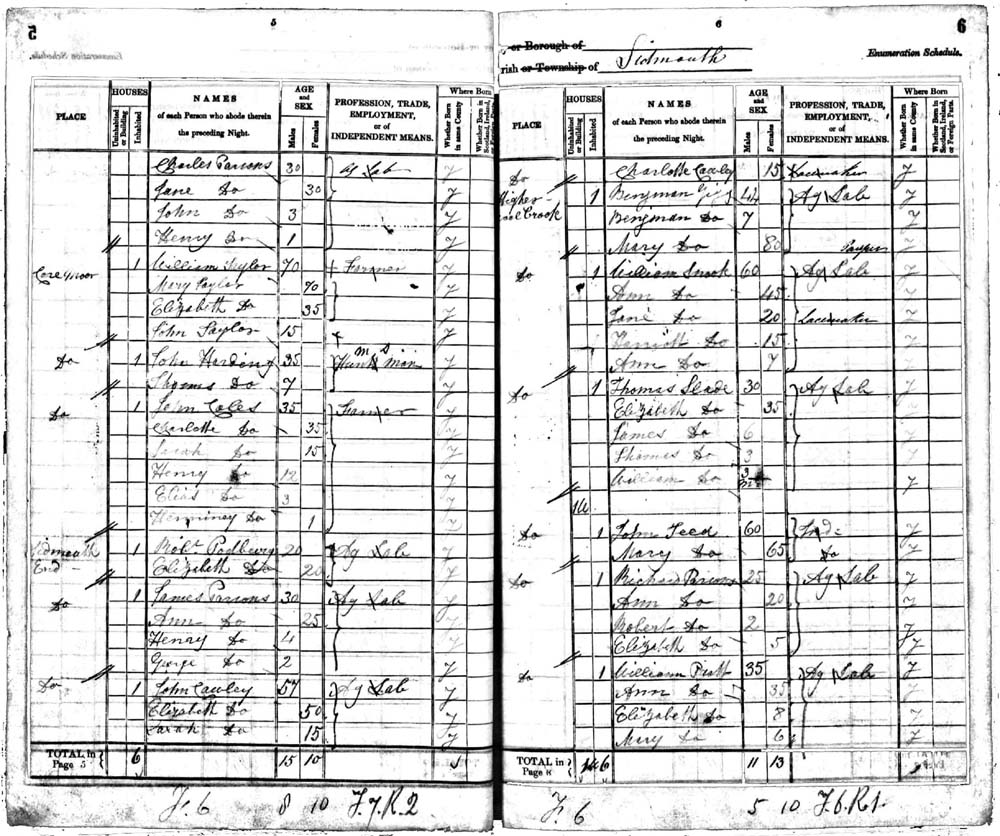 5
5
Enumeration Schedule.
PLACE
HOUSES
Uninhabited or Building
Inhabited
NAMES
of each Person who abode therein
the preceding Night.
AGE
and
SEX
Males
Females
PROFESSION, TRADE,
EMPLOYMENT,
or of
INDEPENDENT MEANS.
Where Born
Whether Born in same County
Whether Born in Scotland, Ireland, or Foreign Parts.
Charles Parsons 30 Ag Lab y
Jane Do 30 y
John Do 3 y
Henry Do 1 y
1 William Taylor 70 Farmer y
Mary Taylor 70 y
Elizabeth Do 35 y
John Taylor 15 y
Do 1 John Harding 35 y
Thomas Do 7 y
Do 1 John Coles 35 Farmer y
Charlotte Do 35 y
Sarah Do 15 y
Henry Do 12 y
Elias Do 3 y
Do 1 y
Sidmouth 1 Robt Podbery 20 Ag Lab y
End - Elizabeth Do 20 y
Do 1 James Parsons 30 Ag Lab y
Ann Do 25 y
Henry Do 4 y
George Do 2 y
Do 1 John Cawley 57 Ag Lab y
Elizabeth Do 50 y
Sarah Do 15 y
TOTAL in
Page 5 6 15 10
F. 6 8 10 F.7.R.2
6
6
or Borough of
rish or Township of Sidmouth
Enumeration Schedule.
PLACE
HOUSES
Uninhabited or Building
Inhabited
NAMES
of each Person who abode therein
the preceding Night.
AGE
and
SEX
Males
Females
PROFESSION, TRADE,
EMPLOYMENT,
or of
INDEPENDENT MEANS.
Where Born
Whether Born in same County
Whether Born in Scotland, Ireland, or Foreign Parts.
Do Charlotte Cawley 15 Lacemaker y
Higher 1 44 Ag Lab y
Do 7 y
Mary Do 80 Pauper y
Do 1 William Snook 60 Ag Lab y
Ann Do 45 y
Jane Do 20 Lacemaker y
Harriott Do 15 y
Ann Do 7 y
Do 1 Thomas Slade 30 Ag Lab y
Elizabeth Do 35 y
James Do 6 y
Thomas Do 3 y
William Do 3 y
Do 1 John Teed 60 Ind: y
Mary Do 65 Do y
Do 1 Richard Parsons 25 Ag Lab y
Ann Do 20 y
Robert Do 2 y
Elizabeth Do 5 y
Do 1 William Pratt 35 Ag Lab y
Ann Do 35 y
Elizabeth Do 8 y
Mary Do 6 y
TOTAL in
Page 6 11 13
F. 6 5 10 F.6.R.1.